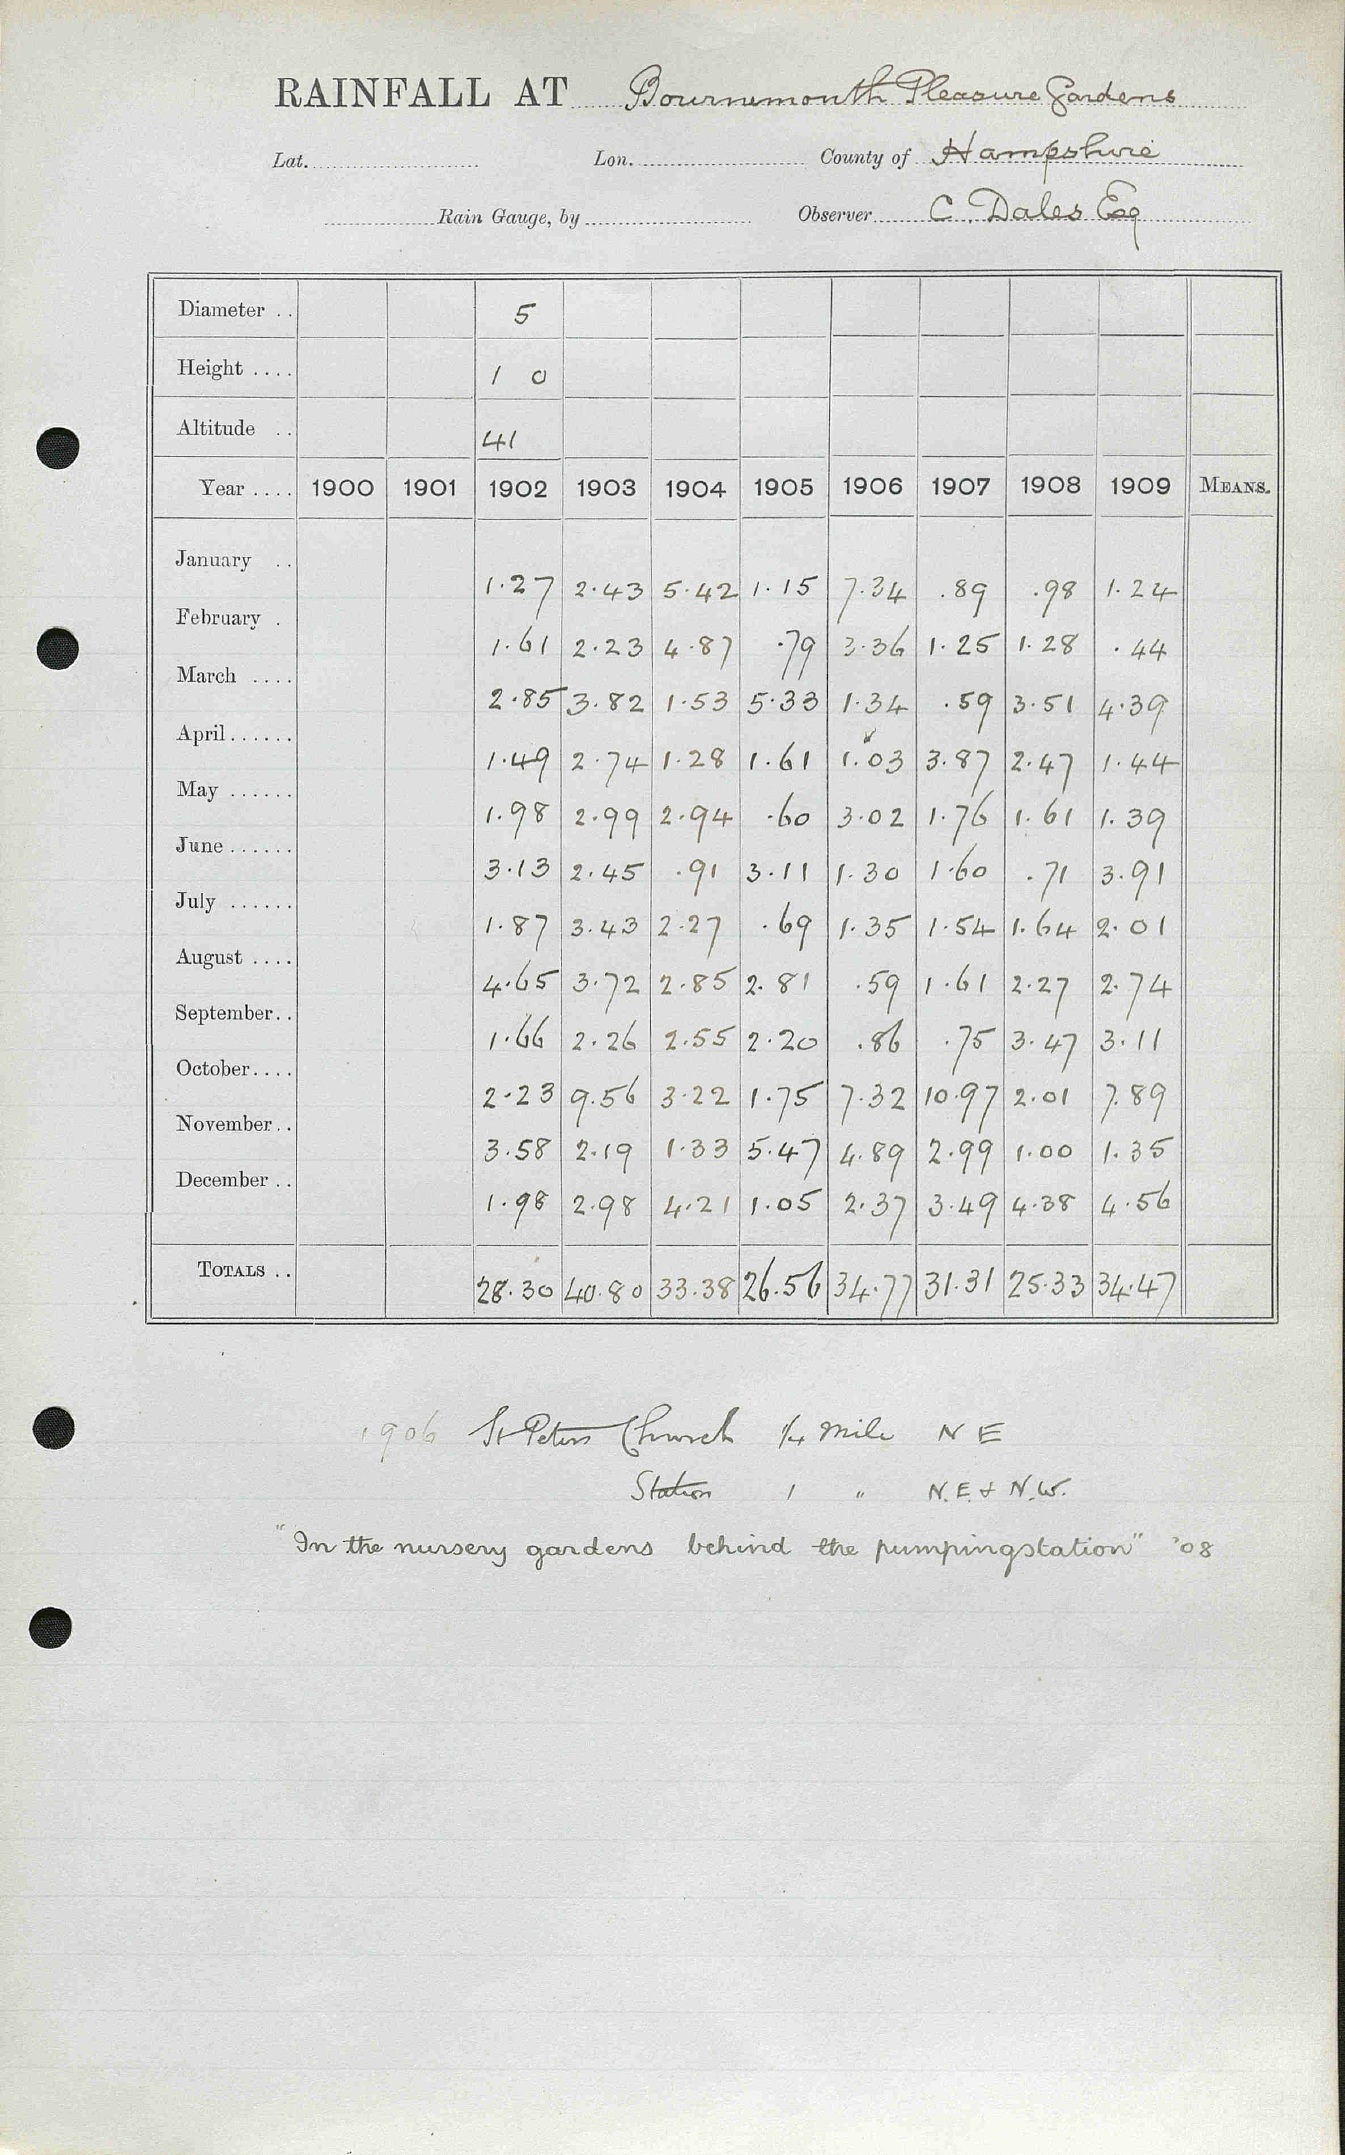 RAINFALL AT Bournemouth Pleasure Gardens
Lat. Lon. County of Hampshire
Rain Gauge, by Observer C. Dales Esq
Diameter . . 5
Height . . . . 1 0
Altitude . . 41
Year . . . . 1900 1901 1902 1903 1904 1905 1906 1907 1908 1909 MEANS.
January . . 1.27 2.43 5.42 1.15 7.34 .89 .98 1.24
February . 1.61 2.23 4.87 .79 3.36 1.25 1.28 .44
March . . . . 2.85 3.82 1.53 5.33 1.34 .59 3.51 4.39
April . . . . . . 1.49 2.74 1.28 1.61 1.03 3.87 2.47 1.44
May . . . . . . 1.98 2.99 2.94 .60 3.02 1.76 1.61 1.39
June . . . . . . 3.13 2.45 .91 3.11 1.30 1.60 .71 3.91
July . . . . . . 1.87 3.43 2.27 .69 1.35 1.54 1.64 2.01
August . . . . 4.65 3.72 2.85 2.81 .59 1.61 2.27 2.74
September . . 1.66 2.26 2.55 2.20 .86 .75 3.47 3.11
October . . . . 2.23 9.56 3.22 1.75 7.32 10.97 2.01 7.89
November . . 3.58 2.19 1.33 5.47 4.89 2.99 1.00 1.35
December . . 1.98 2.98 4.21 1.05 2.37 3.49 4.38 4.56
TOTALS . . 28.30 40.80 33.38 26.56 34.77 31.31 25.33 34.47
1906 St Peters Church 1/4 mile N E
Station 1 " N.E. & N.W.
"In the nursery gardens behind the pumpingstation" '08